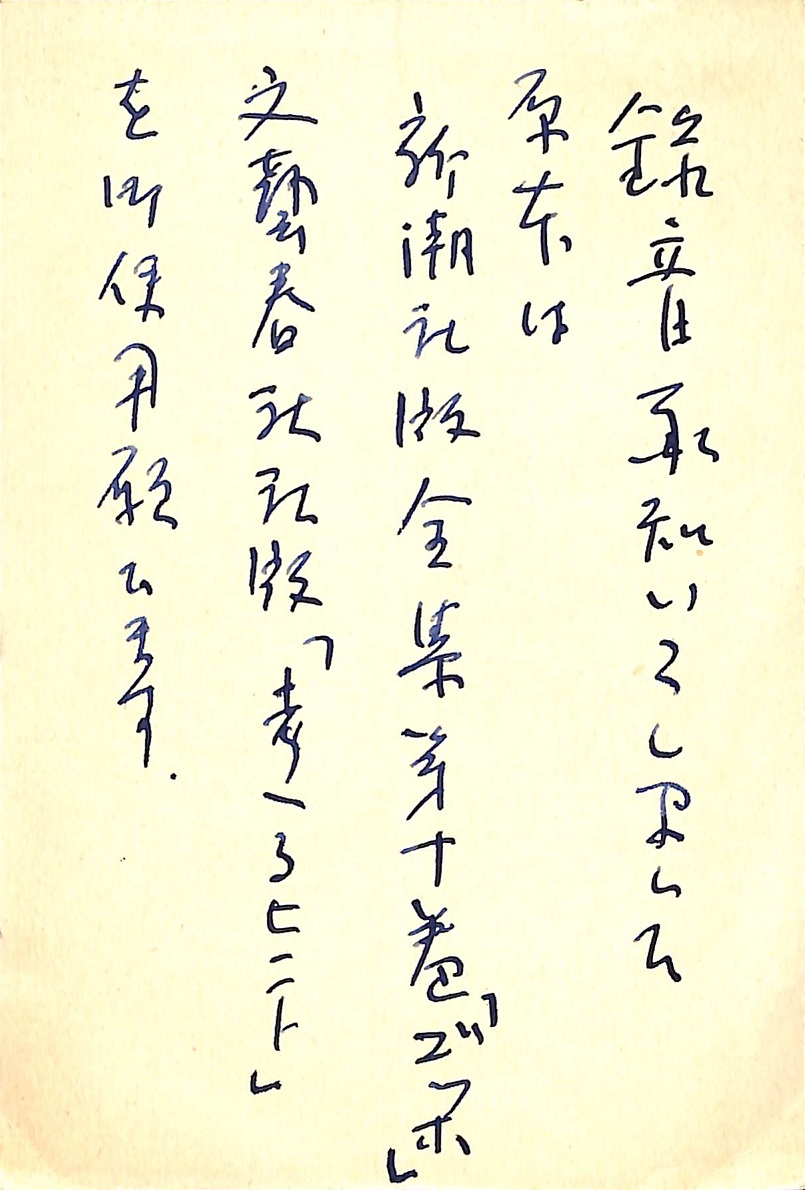 錄音承知いたしました
原本は
新潮社版全集第十巻「ゴッホ」
文藝春秋社版「考へるヒント」
を御使用願ひます.